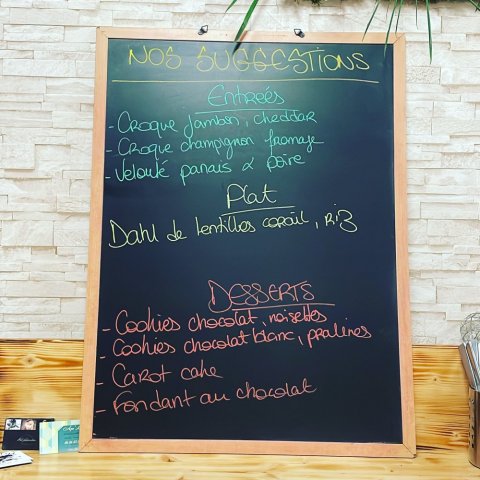 NOS SUGGESTIONS
Entreés
- Croque jambon, cheddar
- Croque champignon fromage
- Velouté panais & poire
Plat
Dahl de lentilles corail, riz
DESSERTS
- Cookies chocolat, noisettes
- Cookies chocolat blanc, pralines
- Carot cake
- Fondant au chocolat